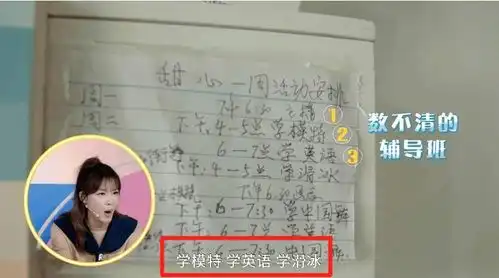 甜心一周活动安排
周一
下午6:30 主持
①
周二
下午.4-5点学模特
②
6-7点学英语
③
下午.4-5点学滑冰
下午6
下午.6-7:30 学中国舞
下午.6-7点学英语
下午.6-7:30 中国舞
数不清的
辅导班
学模特 学英语 学滑冰